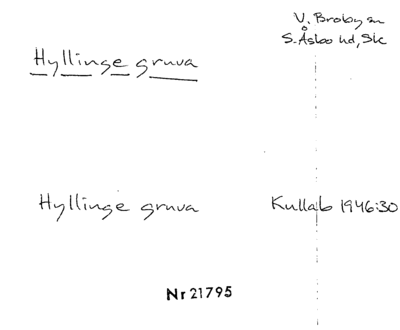 V. Broby sn
S. Åsbo hd, Sk
Hyllinge gruva
Hyllinge gruva
Kullab 1946:30
Nr 21795